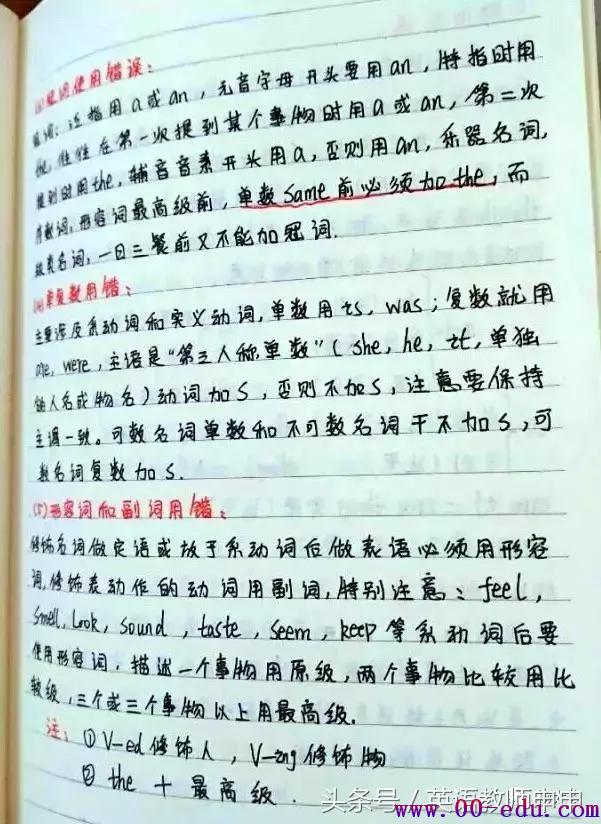 (3)冠词使用错误：
冠词：泛指用a或an，元音字母开头要用an，特指时用
the，往往在第一次提到某个事物时用a或an，第二次
提到时用the，辅音音素开头用a，否则用an，乐器名词，
序数词，形容词最高级前，单数same前必须加the，而
球类名词，一日三餐前又不能加冠词.
(4)单复数用错：
主要涉及系动词和实义动词，单数用is，was；复数就用
are，were，主语是“第三人称单数”（she，he，it，单独
的人名或物名）动词加s，否则不加s，注意要保持
主谓一致。可数名词单数和不可数名词干不加s，可
数名词复数加s.
(5)形容词和副词用错：
修饰名词做定语或放于系动词后做表语必须用形容
词，修饰表动作的动词用副词，特别注意：feel，
smell，look，sound，taste，seem，keep等系动词后要
使用形容词，描述一个事物用原级，两个事物比较用比
较级，三个或三个事物以上用最高级.
注：①V-ed修饰人，V-ing修饰物
②the + 最高级.
头条号／英语教师
www.00-edu.com